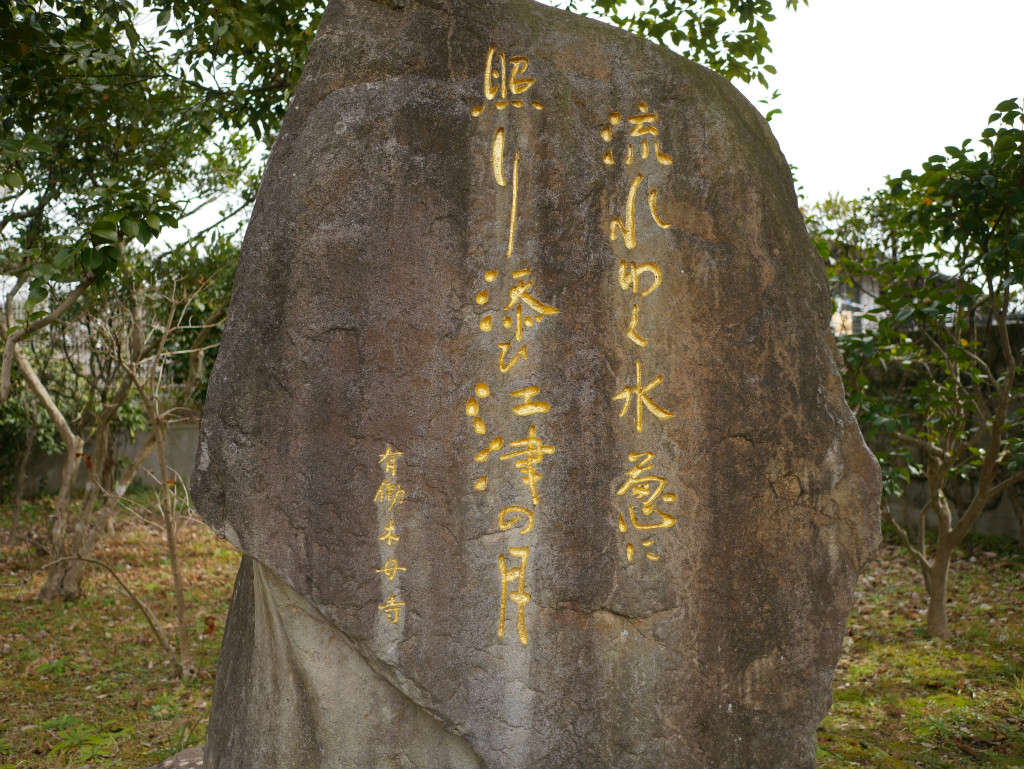 流れゆく水急に
照り添ひ江津の月
有働木母寺